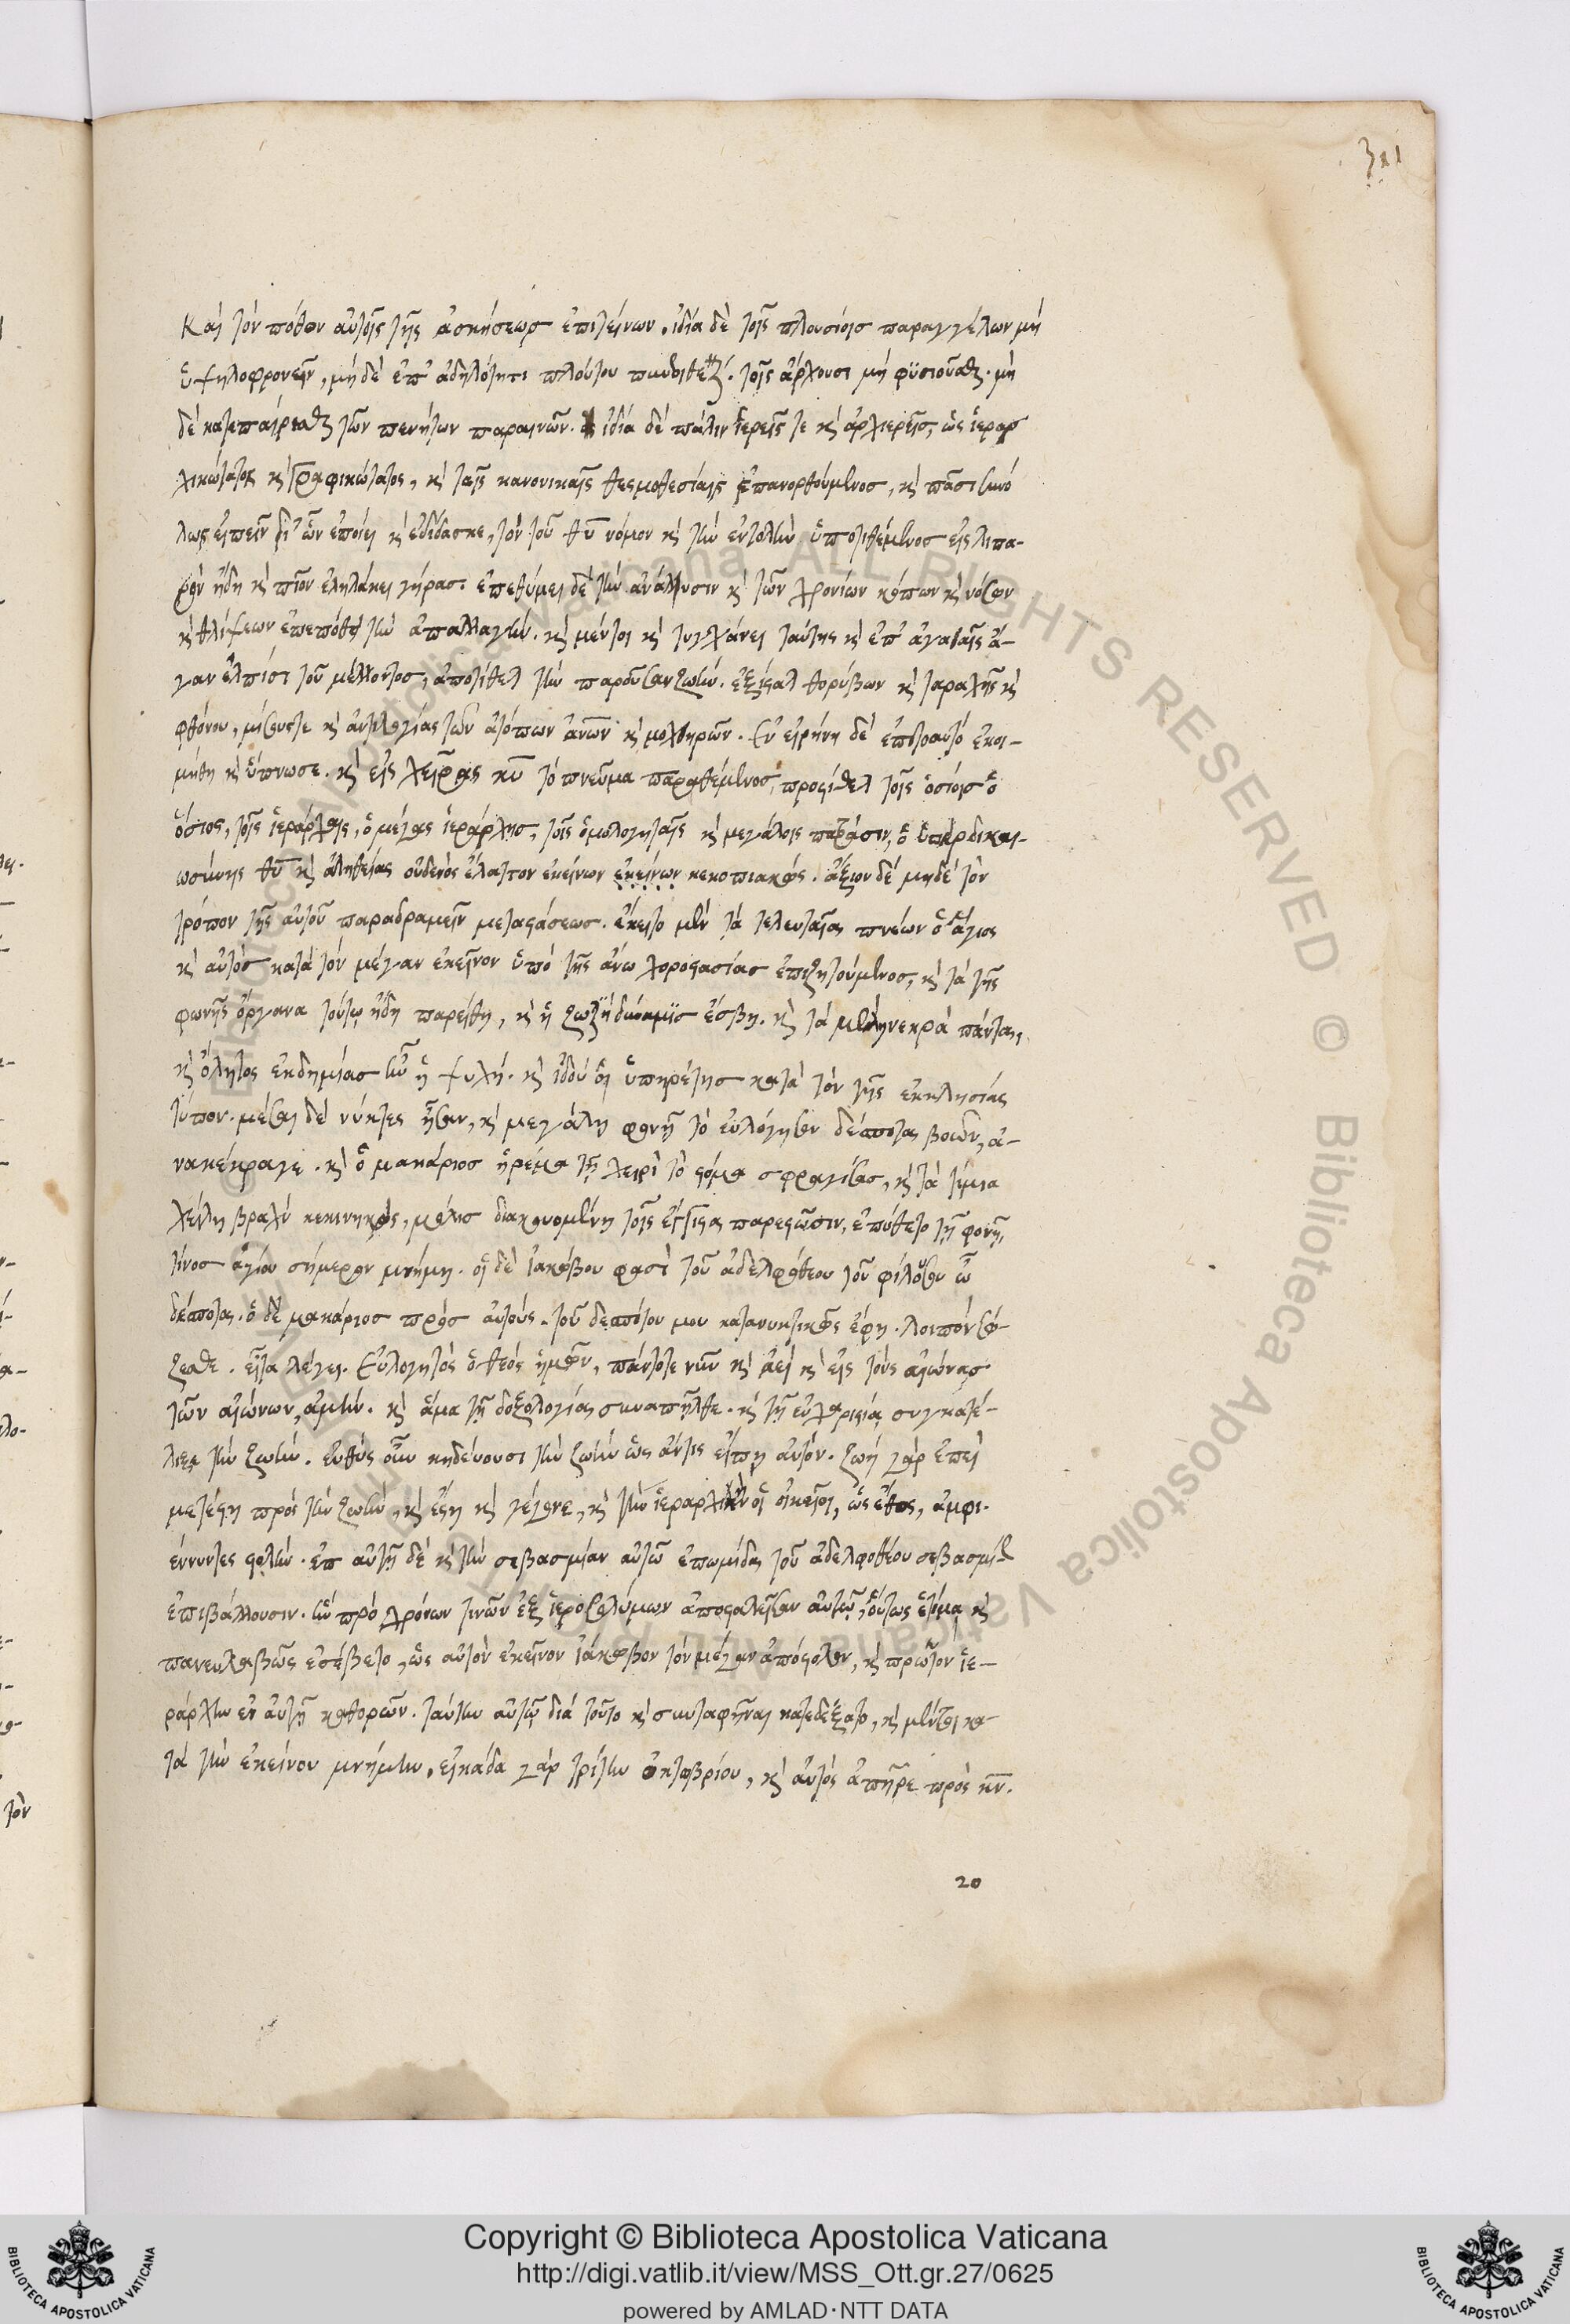 311
Καὶ τὸν πόθον αὐτοῖς τῆς ἀσκήσεως ἐπιτείνων. ἰδία δὲ τοῖς πλουσίοις παραγγέλων μὴ
ὑψηλοφρονεῖν, μὴ δὲ ἐπ' ἀδηλότητι πλούτου πεποιθέναι. τοῖς ἄρχουσι μὴ φυσιοῦσθαι. μὴ
δὲ κατεπαίρεσθαι τῶν πενήτων παραινῶν. ἰδία δὲ πάλιν ἱερεῖς τε καὶ ἀρχιερεῖς, ὡς ἱεραρ
χικώτατος καὶ γραφικώτατος, καὶ ταῖς κανονικαῖς θεσμοθεσίαις ἐπανορθούμενος, καὶ πᾶσι συνό
λως εἰπεῖν δι' ὧν ἐποίει καὶ ἐδίδασκε, τὸν τοῦ θυ νόμον καὶ τὴν ἐντολὴν ὑποτιθέμενος εἰς λιπα-
ρὸν ἤδη καὶ πῖον ἐληλάκει γήρας. ἐπεθύμει δὲ τὴν ἀνάλυσιν καὶ τῶν χρονίων κόπων καὶ νόσων
καὶ θλίψεων ἐπεπόθει τὴν ἀπαλλαγὴν. καὶ μέντοι καὶ τυγχάνει ταύτης καὶ ἐπ' ἀγαθαῖς ἄ-
γαν ἐλπίσι τοῦ μέλλοντος, ἀποτίθεται τὴν παροῦσαν ζωὴν. ἐξίσταται θορύβων καὶ ταραχῆς καὶ
φθόνου, μίσους τε καὶ ἀντιλογίας τῶν ἀτόπων ἀνων καὶ μοχθηρῶν. Ἐν εἰρήνη δὲ ἐπιτοαυτό ἐκοι-
μήθη καὶ ὕπνωσε. καὶ εἰς χεῖρας κυ τὸ πνεῦμα παραθέμενος, προστίθεται τοῖς ὁσίοις ὁ
ὅσιος, τοῖς ἱεράρχαις, ὁ μέγας ἱεράρχης, τοῖς ὁμολογηταῖς καὶ μεγάλοις πατράσιν, ὁ ὑπερδικαι-
ωσύνης θυ καὶ ἀληθείας οὐδενὸς ἔλαττον ἐκείνων ἐκείνων κεκοπιακώς. ἄξιον δὲ μηδὲ τὸν
τρόπον τῆς αὐτοῦ παραδραμεῖν μεταστάσεως. ἔκειτο μὲν τὰ τελευταῖα πνέων ὁ ἅγιος
καὶ αὐτὸς κατὰ τὸν μέγαν ἐκεῖνον ὑπὸ τῆς ἄνω χοροστασίας ἐπιζητούμενος, καὶ τὰ τῆς
φωνῆς ὄργανα τούτῳ ἤδη παρείθη, καὶ ἡ ζωτικὴ δύναμις ἔσβη. καὶ τὰ μὲν ἦν νεκρὰ πάντα,
καὶ ὅλη τος ἐκδημίας ἦν ἡ ψυχή. καὶ ἰδού οἱ ὑπηρέτης κατὰ τὸν τῆς ἐκκλησίας
τύπον. μέσαι δὲ νύκτες ἦσαν, καὶ μεγάλη φωνῆ τὸ εὐλόγησον δέσποτα βοῶν, ἀ-
νακέκραγε. καὶ ὁ μακάριος ἠρέμα τῇ χειρὶ τὸ στόμα σφραγίσας, καὶ τὰ τίμια
χείλη βραχὺ κεκινηκώς, μόλις διακουομένη τοῖς ἔγγιστα παρεστῶσιν, ἐπύθετο τῇ φονῇ,
τίνος ἁγίου σήμερον μνήμη. οἱ δὲ ἰακώβου φασὶ τοῦ ἀδελφοθέου τοῦ φίλου σου ὦ
δέσποτα. ὁ δὲ μακάριος πρὸς αὐτούς. τοῦ δεσπότου μου κατανυκτικῶς ἔφη. λοιπὸν σώ-
ζεσθε. εἶτα λέγει. Εὐλογητὸς ὁ θεὸς ἡμῶν, πάντοτε νῦν καὶ ἀεὶ καὶ εἰς τοὺς αἰώνας
τῶν αἰώνων, ἀμὴν. καὶ ἅμα τῇ δοξολογίᾳ συναπῆλθε. καὶ τῇ εὐχαριστίᾳ συγκατέ-
λιξε τὴν ζωὴν. εὐθὺς οὖν κηδεύουσι τὴν ζωὴν ὡς ἄν τις εἴπῃ αὐτόν. ζωὴ γὰρ ἐπεὶ
μετέστη πρὸς τὴν ζωὴν, καὶ ἔστη καὶ γέγονε, καὶ τὴν ἱεραρχικὴν οἱ οἰκεῖοι, ὡς ἔθος, ἀμφι-
έννυντες στολὴν. ἐπ αὐτῇ δὲ καὶ τὴν σεβασμίαν αὐτῶ ἐπωμίδα τοῦ ἀδελφοθέου σεβασμίως
ἐπιβάλλουσιν. ἣν πρὸ χρόνων τινῶν ἐξ ἱεροσολύμων ἀποσταλεῖσαν αὐτῷ, οὕτως ἐτίμα καὶ
πανευλαβῶς ἐσέβετο, ὡς αὐτὸν ἐκεῖνον ἰάκωβον τὸν μέγαν ἀπόστολον, καὶ πρῶτον ἱε-
ράρχην ἐν αὐτῇ καθορῶν. ταύτην αὐτῷ διὰ τοῦτο καὶ συνταφῆναι κατεδέξατο, καὶ μέντοι κα-
τὰ τὴν ἐκείνου μνήμην, εἰκάδα γὰρ τρίτην ὀκτωβρίου, καὶ αὐτὸς ἀπῆρε πρὸς κν.
20
Copyright © Biblioteca Apostolica Vaticana
http://digi.vatlib.it/view/MSS_Ott.gr.27/0625
powered by AMLAD·NTT DATA